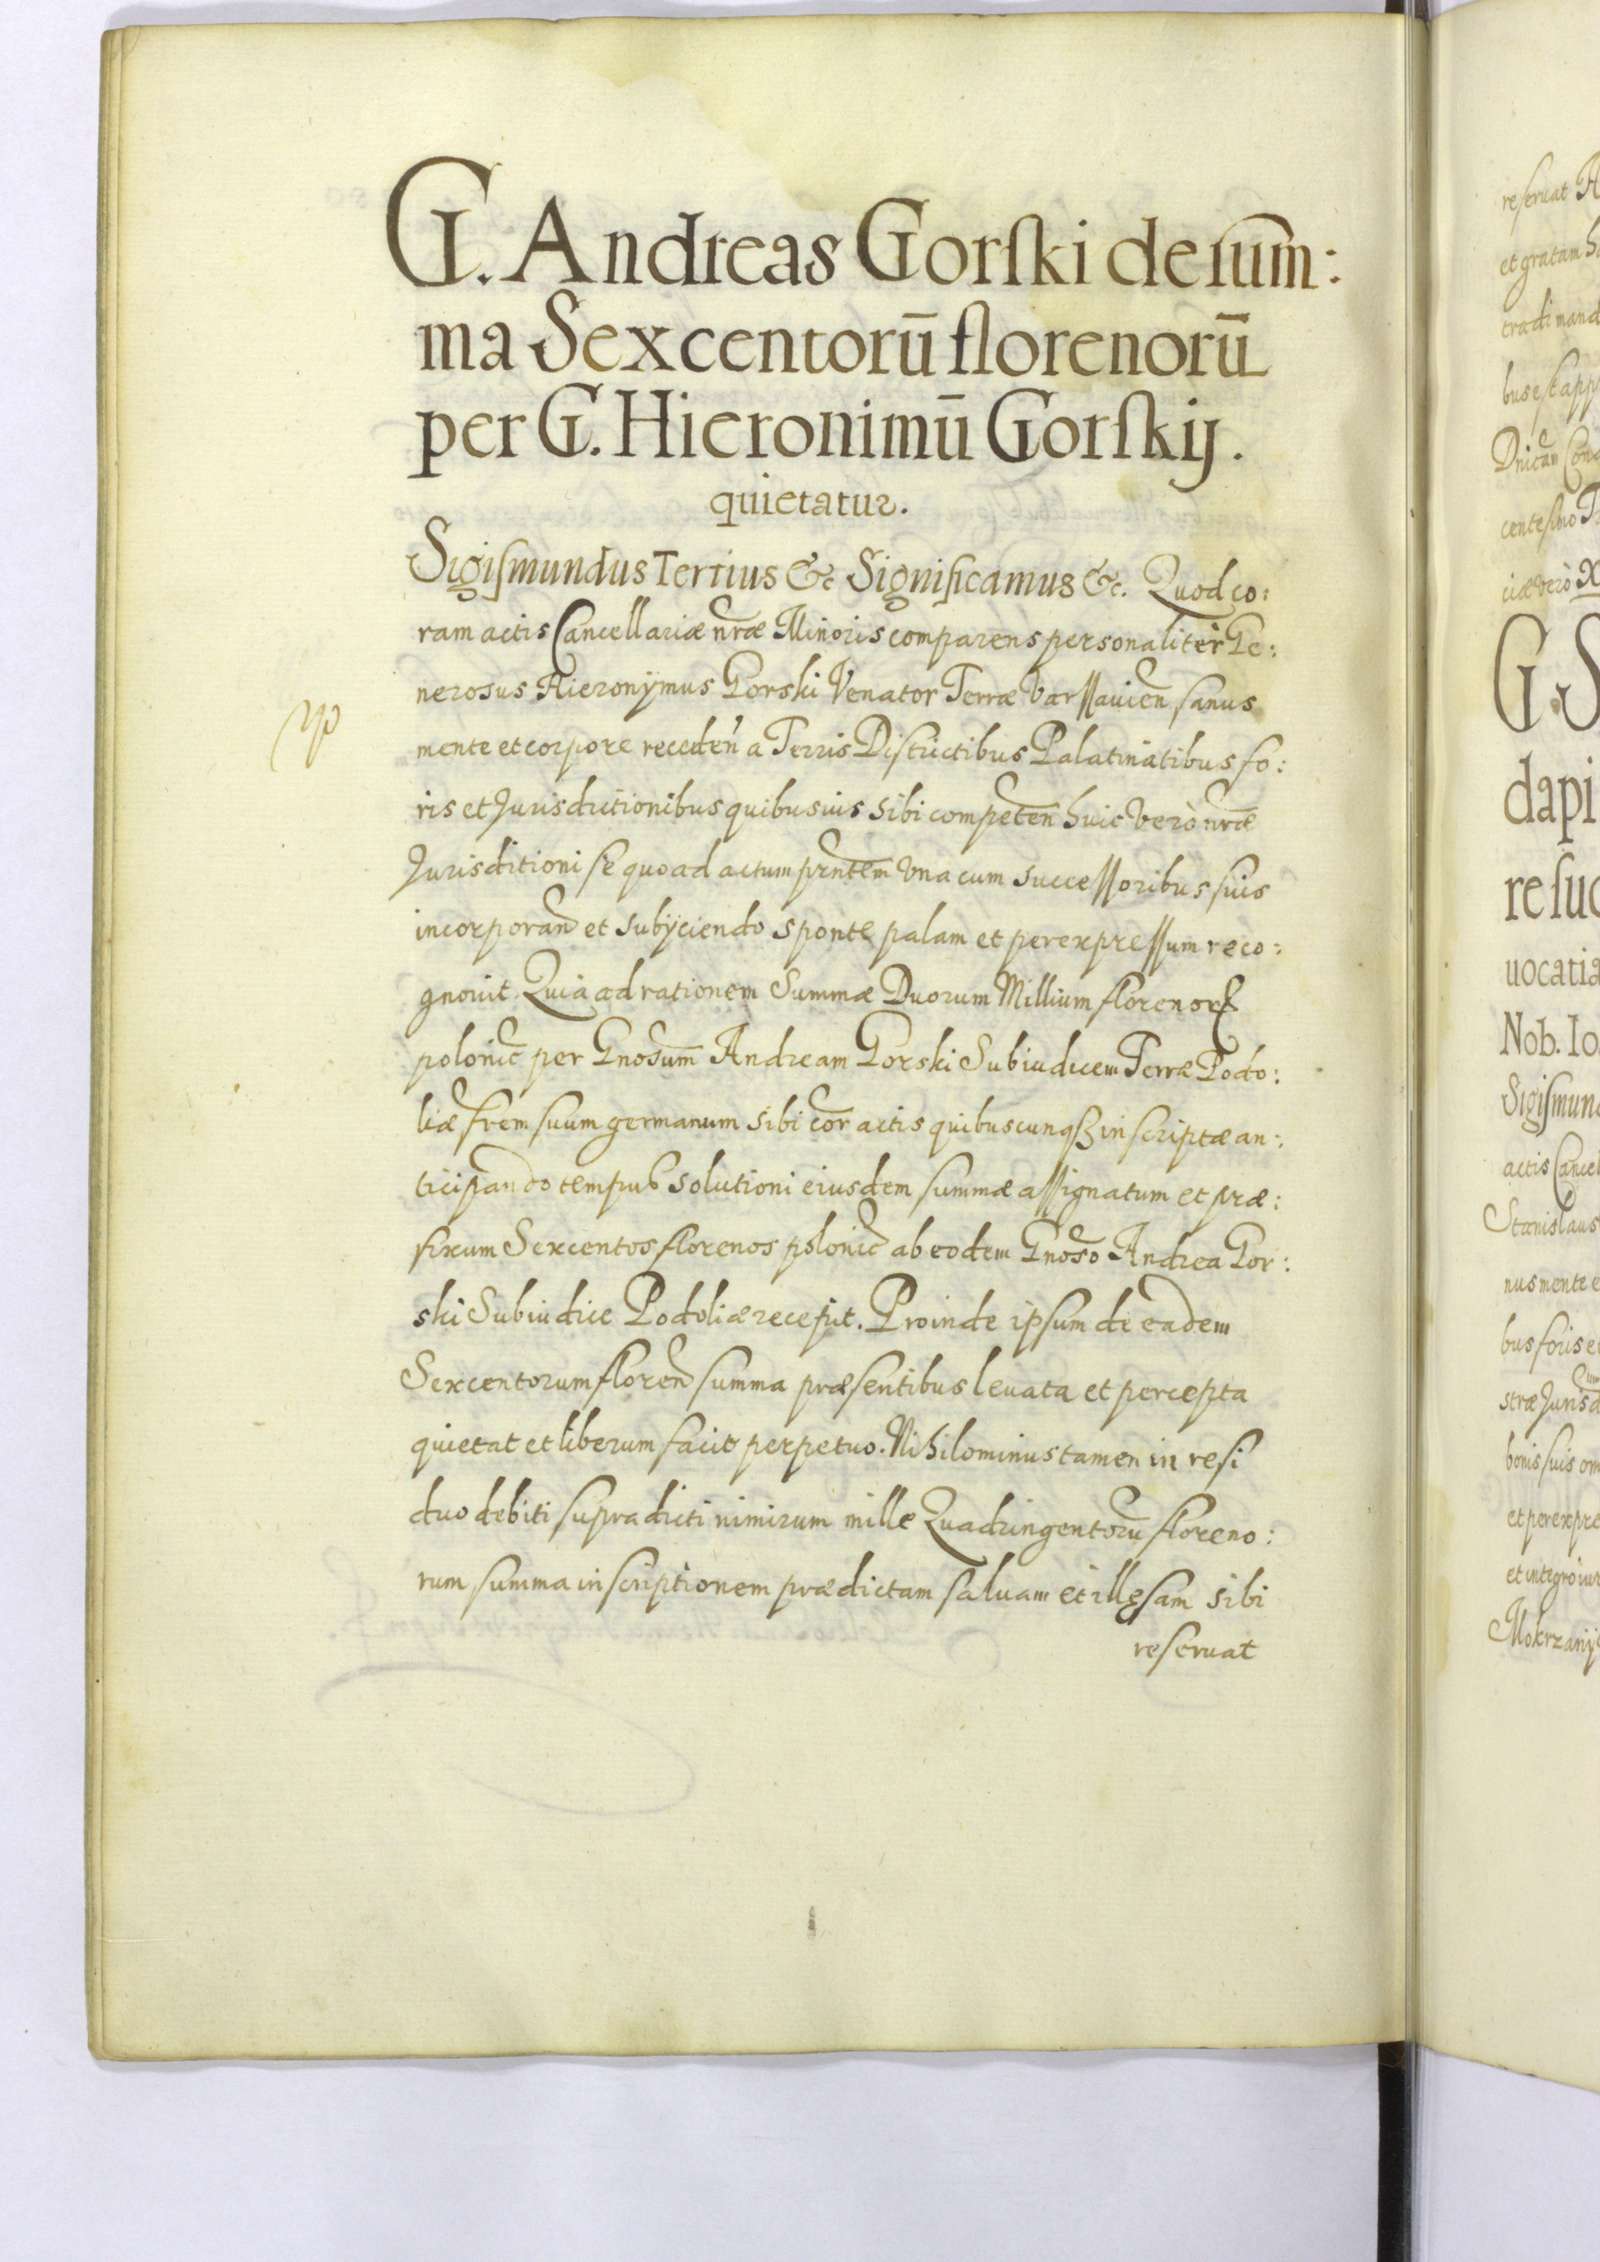 G. Andreas Gorſki de ſum:
ma Sexcentorū florenorū
per G. Hieronimū Gorſkij.
quietatur.
Sigiſmundus Tertius &c Significamus &c. Quod co:
ram actis Cancellariæ nr̄æ Minoris comparens personaliter Ge:
nerosus Hieronÿmus Gorski Venator Terræ Varſſavien̄ sanus
mente et corpore receden̄ a Terris Districtibus Palatinatibus fo:
ris et Jurisdictionibus quibusuis sibi competen̄ huic verò nr̄æ
Jurisdictioni se quo ad actum pr̄ntem vna cum succeſſoribus suis
incorporan̄ et subÿciendo sponte palam et per expreſſum reco:
gnouit. Quia ad rationem Summæ Duorum Millium florenorꝝ
polonic̄ per Gnosum Andream Gorski Subiudicem Terræ Podo:
liæ fr̄em suum germanum sibi cor̄ actis quibuscunqꝫ inscriptæ an:
ticipando tempus solutioni eiusdem summæ aſſignatum et præ:
fixum Sexcentos florenos polonic̄ ab eodem Gnoso Andrea Gor:
ski Subiudice Podoliæ recepit. Proinde ipsum de eadem
Sexcentorum floren̄ summa præsentibus leuata et percepta
quietat et liberum facit perpetuo. Nihilominus tamen in resi
duo debiti supradicti nimirum mille Quadringentorū floreno:
rum summa inscriptionem prædictam saluam et illęsam sibi
reseruat
reseruat
et gratam
tradi mand
bus est app
centesimo
uæ verò
G. S
dapi
re ſuc
uocatia
Nob. Io
Sigiſmun
actis Cancel
Stanislaus
nus mente e
bus foris et
stræ Jurisd
bonis suis om
et per expre
et integro iur
Mokrzanÿ